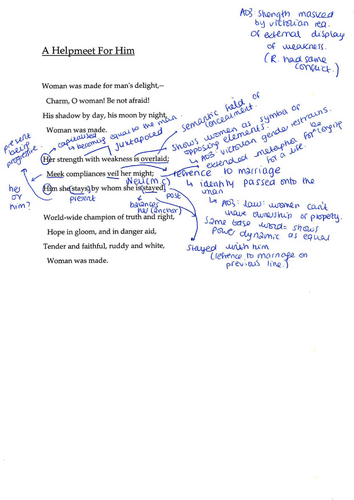 AO3: strength masked
by victorian rea.
of external display
of weakness.
(R. had same
conflict.)
A Helpmeet For Him
Woman was made for man's delight,–
Charm, O woman! Be not afraid!
His shadow by day, his moon by night,
Woman was made.
capitalised
→ becoming equal to the man.
juxtaposed
semantic field of
concealment.
present
being
progressive.
Her strength with weakness is overlaid;
Meek compliances veil her might;
Him she stays, by whom she is stayed.
shows women as symbol of
opposing elements.
↳ AO3: victorian gender restrains.
extended metaphor for longing
for a life.
refrence to marriage
↳ identity passed onto the
man
↳ AO3: law: women can't
have ownership of property.
her
or
him?
present
past
balances
her (anchor)
same base word = shows
power dynamic as equal
stayed with him
(refrence to marriage on
previous line.)
World-wide champion of truth and right,
Hope in gloom, and in danger aid,
Tender and faithful, ruddy and white,
Woman was made.